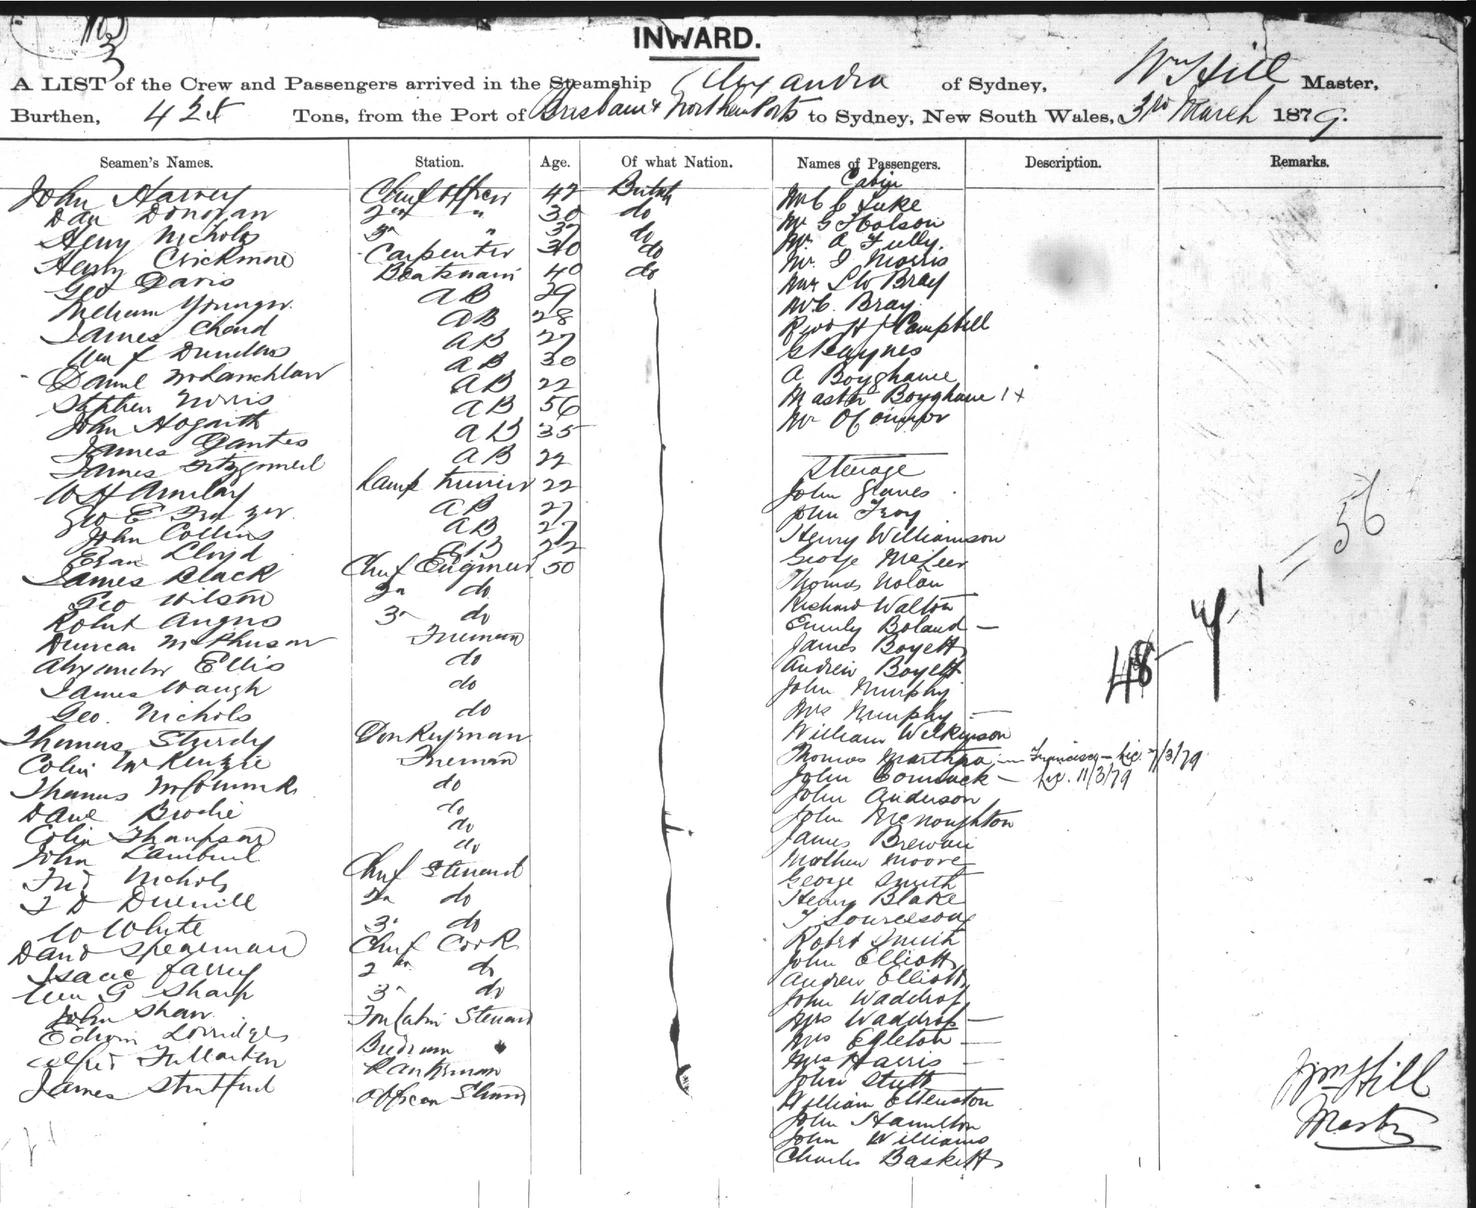 INWARD.
A LIST of the Crew and Passengers arrived in the Steamship Alexandra of Sydney, Wm Hill Master,
Burthen, 425 Tons, from the Port of Brisbane & Northern Ports to Sydney, New South Wales, 3rd March 1879.
Seamen's Names. Station. Age. Of what Nation. Names of Passengers. Description. Remarks.
John Harvey Chief Officer 42 British
Dan Donovan 2nd " 30 do
Henry Nicholos 3rd " 37 do
Henry Crickmore Carpenter 30 do
Geo Davis Boatswain 40 do
William Younger AB 29
James Chard AB 28
Wm J Dundas AB 27
Daniel McLauchlan AB 30
Stephen Norris AB 22
John Hogarth AB 56
James AB 35
James AB 22
W H Lamp Trimmer 22
Geo E AB 27
John Collins AB 27
Evan Lloyd AB 22
James Black Chief Engineer 50
Geo Wilson 2n do
Robert Angus 3n do
Duncan McPherson Fireman
Alexander Ellis do
James Waugh do
Geo. Nichols do
Thomas Sturdy Donkeyman
Colin McKenzie Fireman
Thomas McCormick do
Dave Brodie do
Colin Thompson do
John do
Fred Nichols Chief Steward
T D 2n do
W White 3 do
David Spearman Chief Cook
Isaac Jarrey 2nd do
Wm G Sharp 3n do
John Shaw Fore Cabin Steward
Edwin Lorridge Bedroom "
Alfred Fullarton Pantryman
James Stratford Officers Steward
Cabin
Mr C C Luke
Mr G Holson
Mr A Tully.
Mr I Morris
Mr S W Bray
Mr C. Bray
Revd H J Campbell
G Raynes
A Boyghame
Master Boyghame 1 +
Mr O'Connor
Steerage
John Graves
John Troy
Henry Williamson
George McLeer
Thomas Nolan
Richard Walton
Emily Boland —
James Boyett
Andrew Boyett
John Murphy
Mrs Murphy —
William Wilkinson
Thomas — Francisco — Lic. 7/3/79
John Cormack — Lic. 11/3/79
John Anderson
John McNoughton
James Brewan
Mathew Moore
George Smith
Henry Blake
T
Robert Smith
John Elliott
Andrew Elliott
John Waddrop
Mrs Waddrop —
Mrs Egleton —
Mrs Harris —
John Stutt
William Ettenston
John Hamilton
John Williams
Charles Baskett
48 — 7 - 1 = 56
Wm Hill
Master